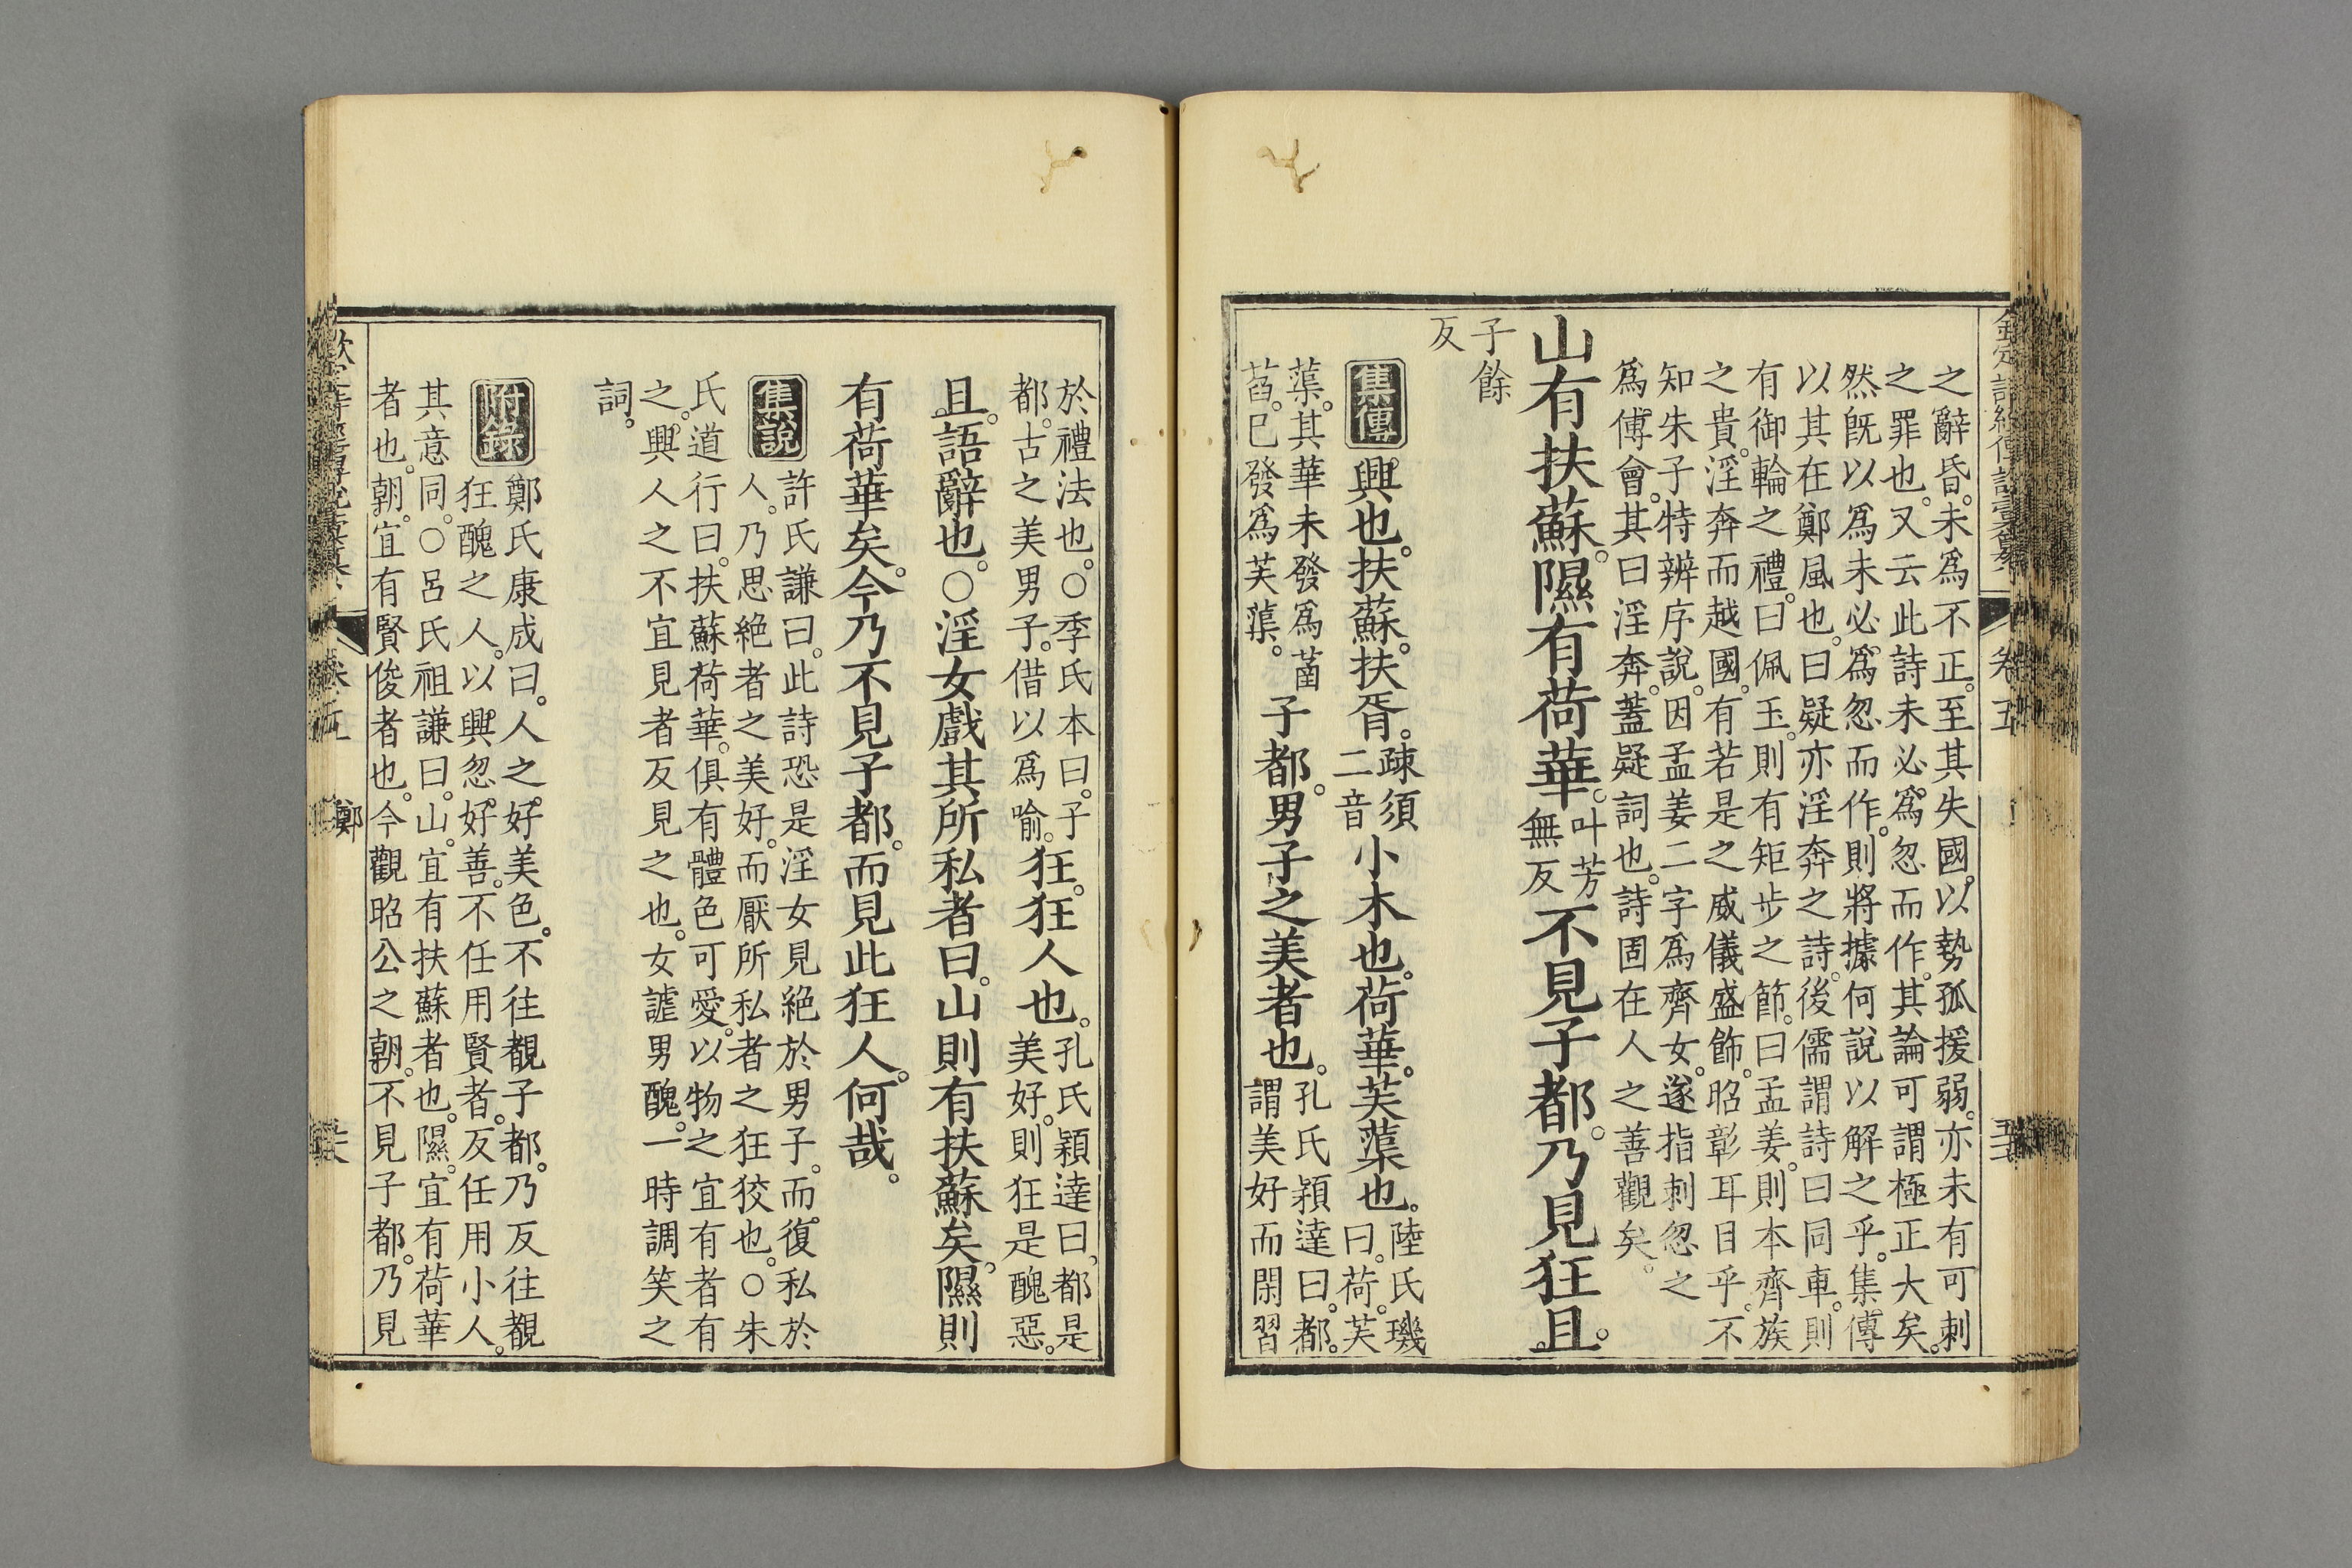 之辭昏。未為不正。至其失國。以勢孤援弱。亦未有可刺
之罪也。又云此詩未必為忽而作。其論可謂極正大矣。
然旣以為未必為忽而作。則將據何說以解之乎。集傳
以其在鄭風也。曰疑亦淫奔之詩。後儒謂詩曰同車。則
有御輪之禮。曰佩玉。則有矩步之節。曰孟姜。則本齊族
之貴。淫奔而越國。有若是之威儀盛飾。昭彰耳目乎。不
知朱子特辨序說。因孟姜二字為齊女。遂指刺忽之
為傅會。其曰淫奔。蓋疑詞也。詩固在人之善觀矣。
山有扶蘇。隰有荷華。叶芳
無反
不見子都。乃見狂且。
子餘
反
集傳
興也。扶蘇。扶胥。疎須
二音
小木也。荷華。芙蕖也。陸氏璣
曰。荷。芙
蕖。其華未發為菡
萏。已發為芙蕖。
子都。男子之美者也。孔氏穎達曰。都。
謂美好而閑習
於禮法也。○季氏本曰。子
都。古之美男子。借以為喻。
狂。狂人也。孔氏穎達曰。都是
美好。則狂是醜惡。
且。語辭也。○淫女戲其所私者曰。山則有扶蘇矣。隰則
有荷華矣。今乃不見子都。而見此狂人。何哉。
集說
許氏謙曰。此詩恐是淫女見絕於男子。而復私於
人。乃思絕者之美好。而厭所私者之狂狡也。○朱
氏道行曰。扶蘇荷華。俱有體色可愛。以物之宜有者有
之。興人之不宜見者反見之也。女謔男醜。一時調笑之
詞。
附錄
鄭氏康成曰。人之好美色。不往覩子都。乃反往覩
狂醜之人。以興忽好善。不任用賢者。反任用小人。
其意同。○呂氏祖謙曰。山。宜有扶蘇者也。隰。宜有荷華
者也。朝。宜有賢俊者也。今觀昭公之朝。不見子都。乃見
鄭